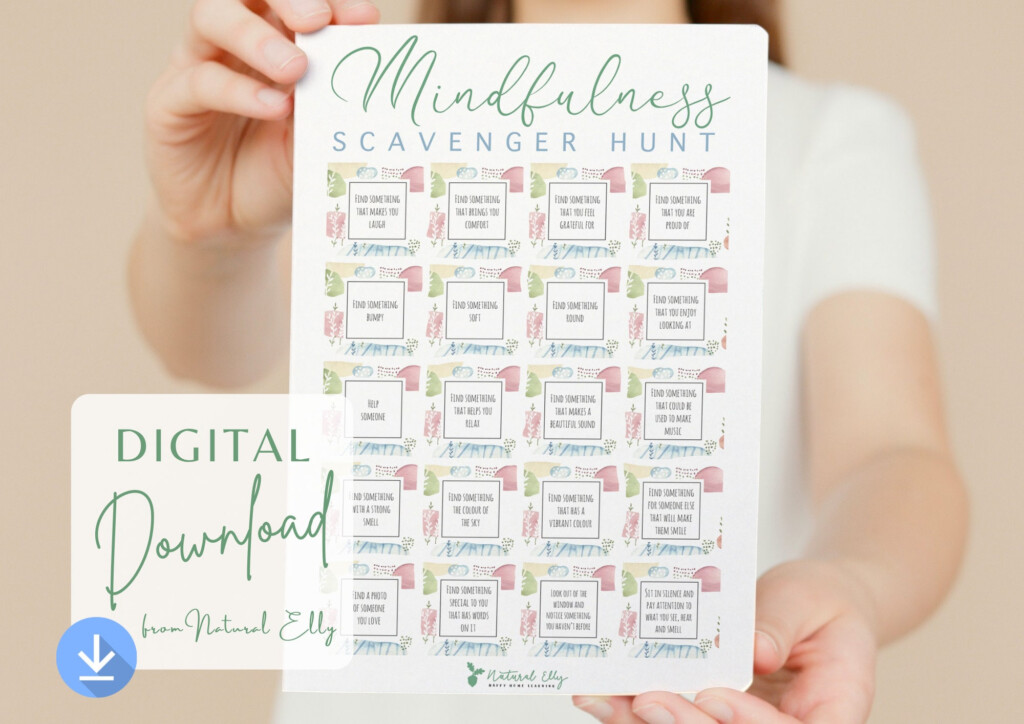 Mindfulness
SCAVENGER HUNT
FIND SOMETHING
THAT MAKES YOU
LAUGH
FIND SOMETHING
THAT BRINGS YOU
COMFORT
FIND SOMETHING
THAT YOU FEEL
GRATEFUL FOR
FIND SOMETHING
THAT YOU ARE
PROUD OF
FIND SOMETHING
BUMPY
FIND SOMETHING
SOFT
FIND SOMETHING
ROUND
FIND SOMETHING
THAT YOU ENJOY
LOOKING AT
HELP
SOMEONE
FIND SOMETHING
THAT HELPS YOU
RELAX
FIND SOMETHING
THAT MAKES A
BEAUTIFUL SOUND
FIND SOMETHING
THAT COULD BE
USED TO MAKE
MUSIC
FIND SOMETHING
WITH A STRONG
SMELL
FIND SOMETHING
THE COLOUR OF
THE SKY
FIND SOMETHING
THAT HAS A
VIBRANT COLOUR
FIND SOMETHING
FOR SOMEONE ELSE
THAT WILL MAKE
THEM SMILE
FIND A PHOTO
OF SOMEONE
YOU LOVE
FIND SOMETHING
SPECIAL TO YOU
THAT HAS WORDS
ON IT
LOOK OUT OF THE
WINDOW AND
NOTICE SOMETHING
YOU HAVEN'T BEFORE
SIT IN SILENCE AND
PAY ATTENTION TO
WHAT YOU SEE, HEAR
AND SMELL
Natural Elly
HAPPY HOME LEARNING
DIGITAL
Download
from Natural Elly